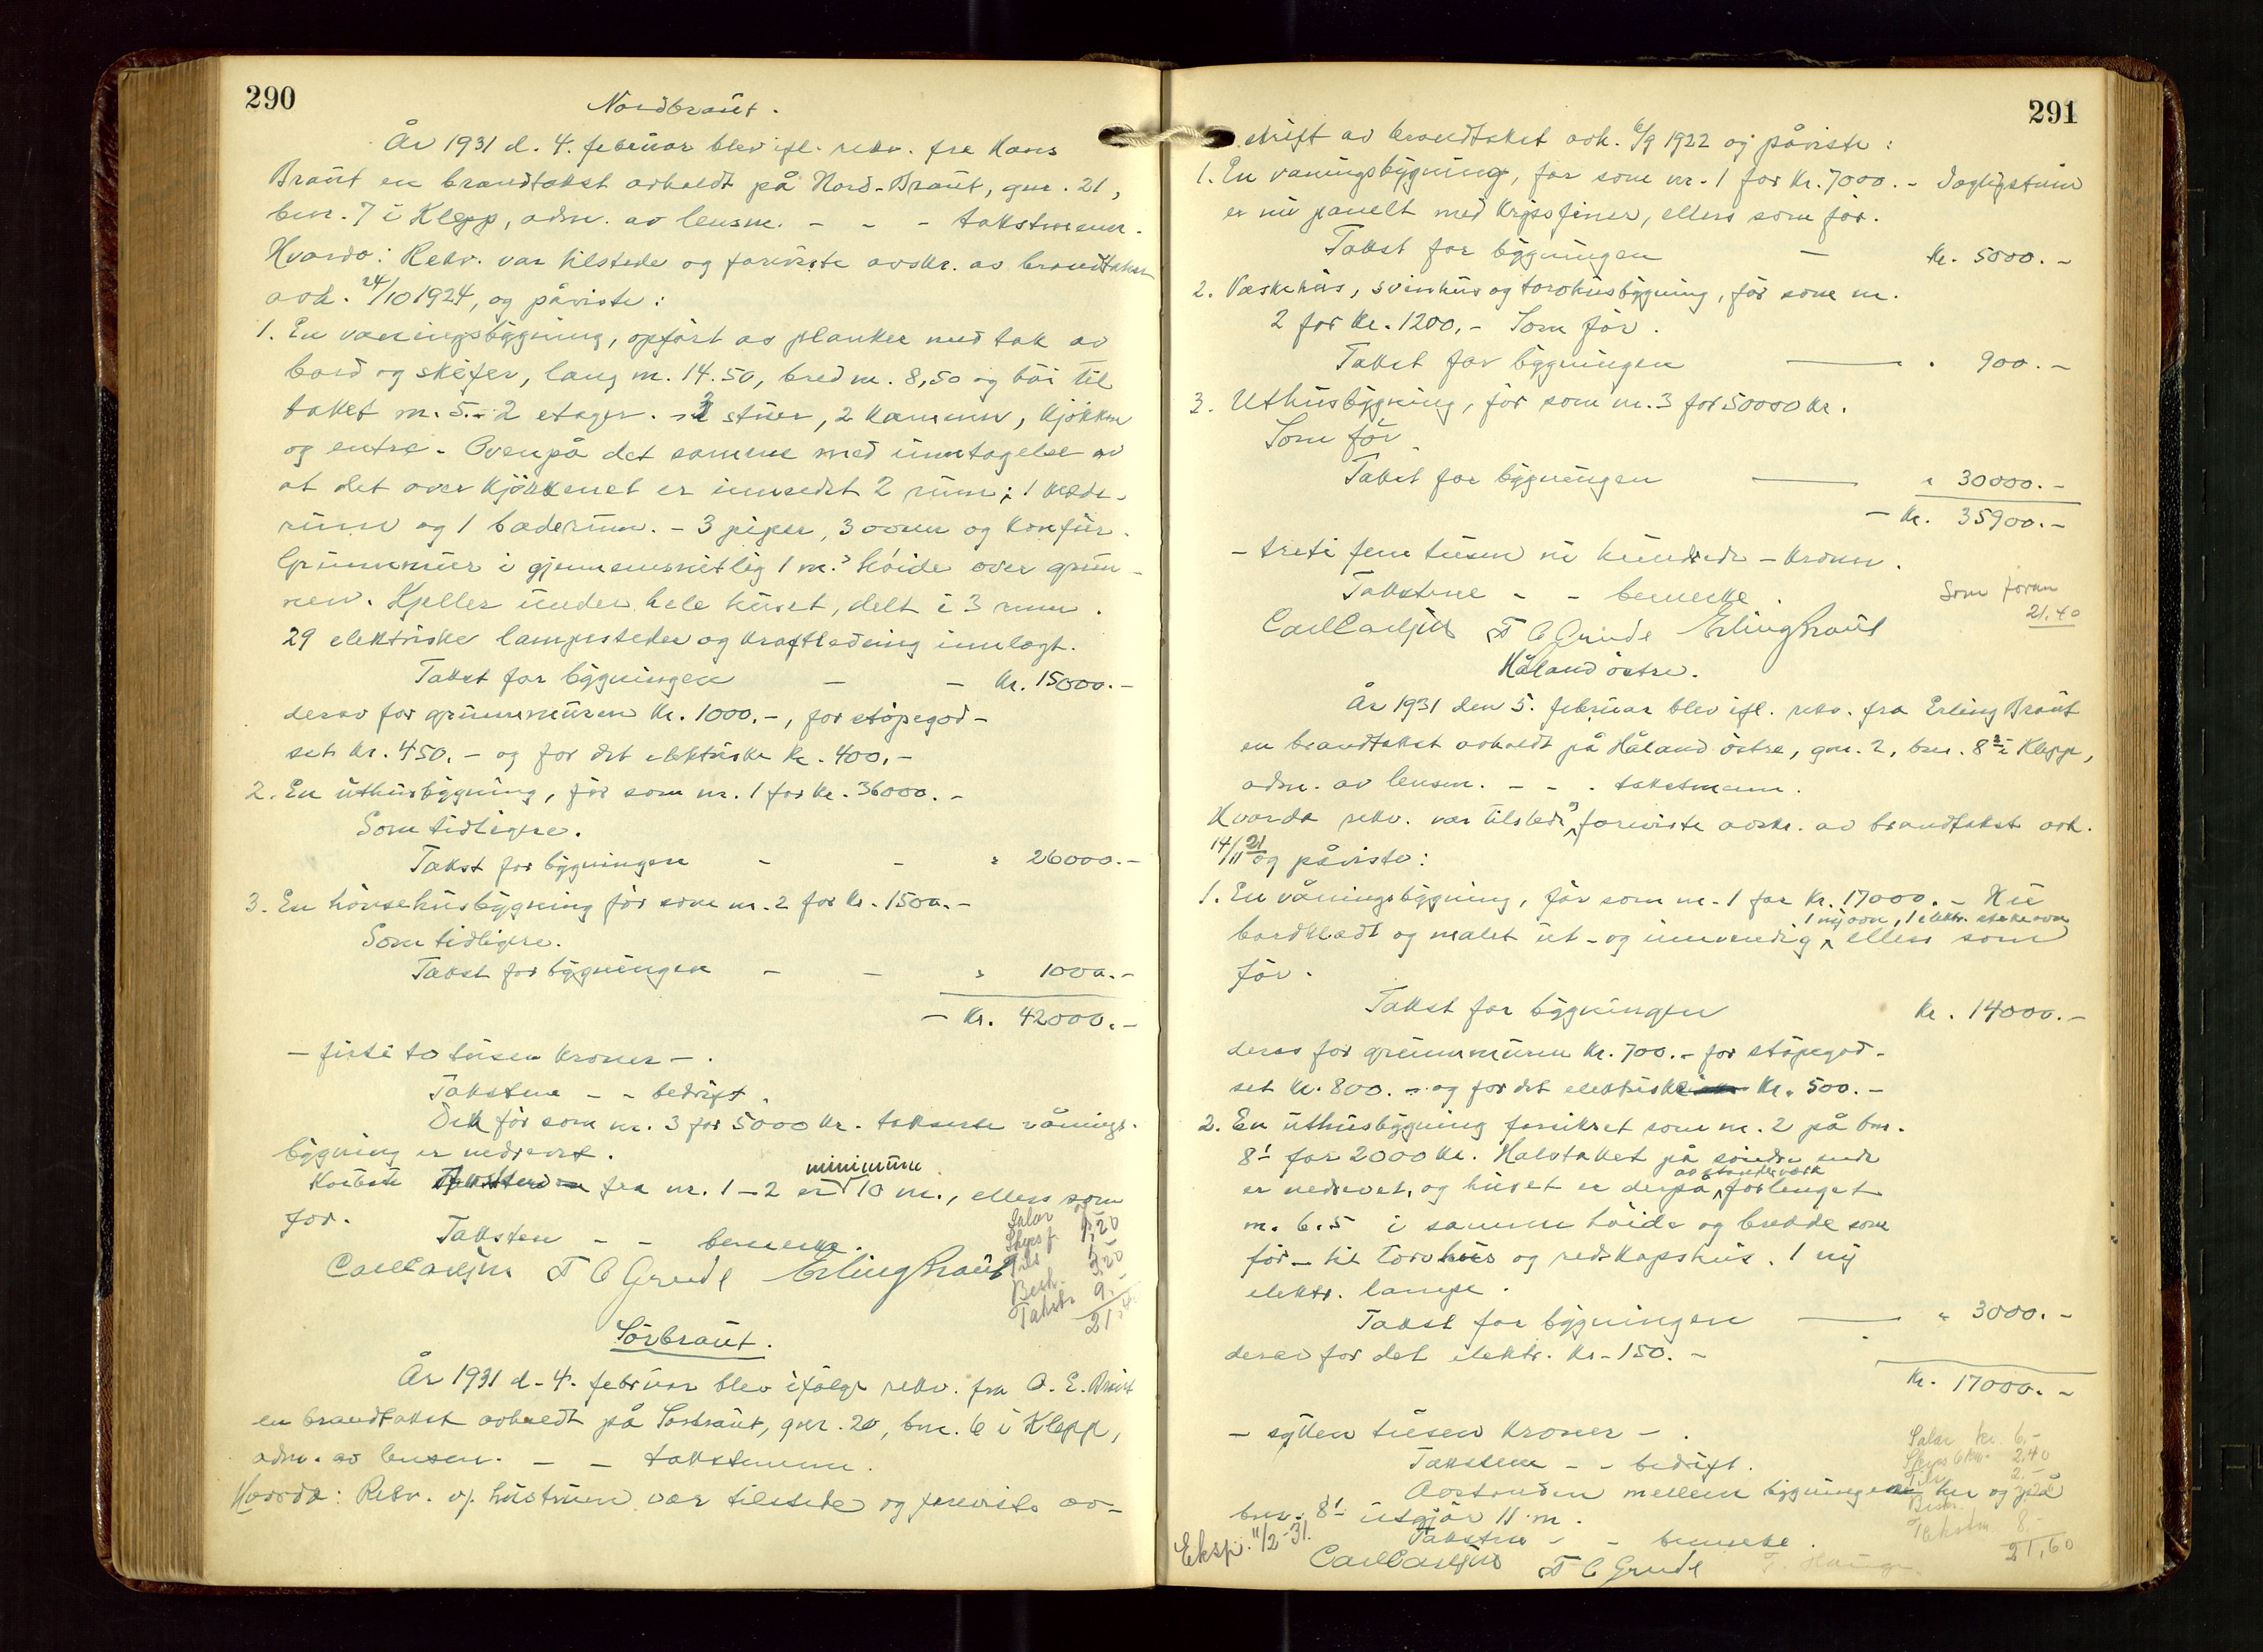 290
Nordbraut.
År 1931 d. 4. februar blev ifl. rekv. fra Hans
Braut en brandtakst avholdt på Nord-Braut, gnr. 21,
bnr. 7 i Klepp, adm. av lensm. - - - takstmenn.
Hvorda: Rekv. var tilstede og foreviste avskr. av brandtakst
avh. 24/10 1924, og påviste:
1. En våningsbygning, opført av planker med tak av
bord og skifer, lang m. 14.50, bred m. 8,50 og høi til
taket m. 5.- 2 etager. - 2 stuer, 2 kammer, kjøkken
og entre. Ovenpå det samme med unntagelse av
at det over kjøkkenet er innredet 2 rum; 1 klæde-
rum og 1 baderum. - 3 piper, 3 ovner og komfur.
Grunnmur i gjennemsnitlig 1 m.s høide over grun-
nen. Kjeller under hele huset, delt i 3 rum.
29 elektriske lampesteder og kraftledning innlagt.
Takst for bygningen - - kr. 15000.-
derav for grunnmuren kr. 1000.-, for støpegod-
set kr. 450.- og for det elektriske kr. 400.-
2. En uthusbygning, før som nr. 1 for kr. 36000.-
Som tidligere.
Takst for bygningen - - " 26000.-
3. En hønsehusbygning før som nr. 2 for kr. 1500.-
Som tidligere.
Takst for bygningen - - " 1000.-
- kr. 42000.-
- firti to tusen kroner -.
Takstene - - bedrift.
Den før som nr. 3 for 5000 kr. takserte vånings-
bygning er nedrevet.
fra nr. 1-2 er minimum 10 m., ellers som
før.
Taksten - - bemerke.
Salær 6,-
Skyss f. 1,20
Tils
Besk. 3,20
Takstm. 9.-
21,40
Carl Carlsen T C Grude Erling Braut
Sørbraut.
År 1931 d. 4. februar blev ifølge rekv. fra O. E. Braut
en brandtakst avholdt på Sørbraut, gnr. 20, bnr. 6 i Klepp,
adm. av lensm. - - takstmenn.
Hvorda: Rekv. v/ hustruen var tilstede og foreviste av-
291
skrift av brandtakst avh. 6/9 1922 og påviste:
1. En våningsbygning, før som nr. 1 for kr. 7000.- Dagligstuen
er nu panelt med kryssfiner, ellers som før.
Takst for bygningen - kr. 5000.-
2. Vaskehus, svinhus og torvhusbygning, før som nr.
2 for kr. 1200,- Som før.
Takst for bygningen " 900.-
3. Uthusbygning, før som nr. 3 for 50000 kr.
Som før
Takst for bygningen " 30000.-
- kr. 35900.-
- treti fem tusen ni hundrede - kroner.
Takstene - - bemerke.
Som foran
21,40
Carl Carlsen T C Grude Erling Braut
Håland østre.
År 1931 den 5. februar blev ifl. rekv. fra Erling Braut
en brandtakst avholdt på Håland østre, gnr. 2, bnr. 8 i Klepp,
adm. av lensm. - - - takstmenn.
Hvorda rekv. var tilstede og foreviste avskr. av brandtakst avh.
14/11 21 og påviste:
1. En våningsbygning, før som nr. 1 for kr. 17000.- Nu
bordklædt og malet ut- og innvendig, 1 ny ovn, 1 elektr. stekeovn ellers som
før.
Takst for bygningen kr. 14000.-
derav for grunnmuren kr. 700.- for støpegod-
set kr. 800.- og for det elektriske kr. 500.-
2. En uthusbygning forsikret som nr. 2 på bnr.
8¹ for 2000 kr. Halvtaket på søndre ende
er nedrevet, og huset er derpå av stenderverk forlenget
m. 6.5 i samme høide og bredde som
før - til torvhus og redskapshus. 1 ny
elektr. lampe.
Takst for bygningen " 3000.-
derav for det elektr. kr. 150.-
kr. 17000.-
- sytten tusen kroner -.
Takstene - - bedrift.
Avstanden mellem bygningene her og på
bnr. 8¹ utgjør 11 m.
Taksten - - bemerke.
Salær kr. 6,-
Skyss 6 km. 2,40
Tils 2.-
Besk.
Takstm 8.-
21,60
Eksp. 11/2-31.
Carl Carlsen T C Grude